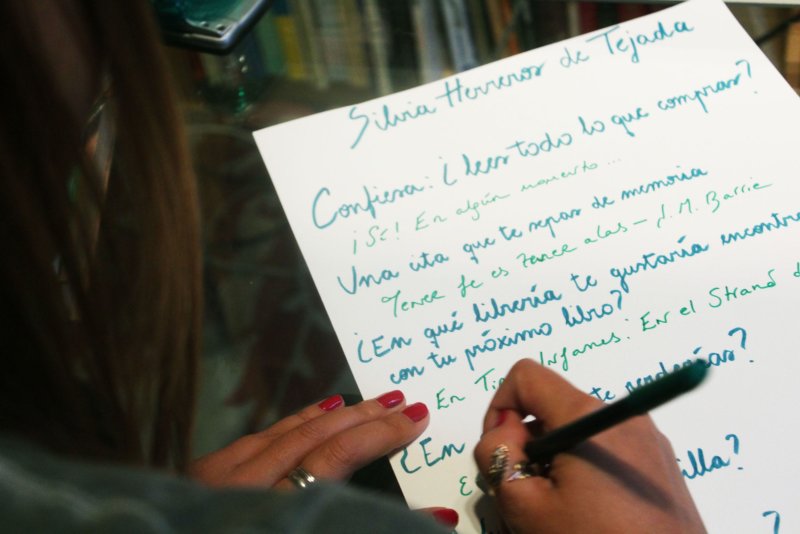 Silvia Herreros de Tejada
Confiesa: ¿lees todo lo que compras?
¡Sí! En algún momento...
Una cita que te sepas de memoria
Tener fe es tener alas – J. M. Barrie
¿En qué librería te gustaría encontra
con tu próximo libro?
En Tipos Infames. En el Strand d
te perderías?
¿En
illa?
E
?